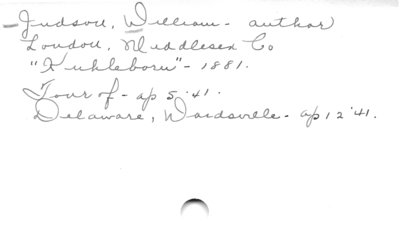 - Judson, William - author
London, Middlesex Co
"Kuhleborn" - 1881.
Tour of - ap 5 '41.
Delaware, Wardsville - ap 12 '41.